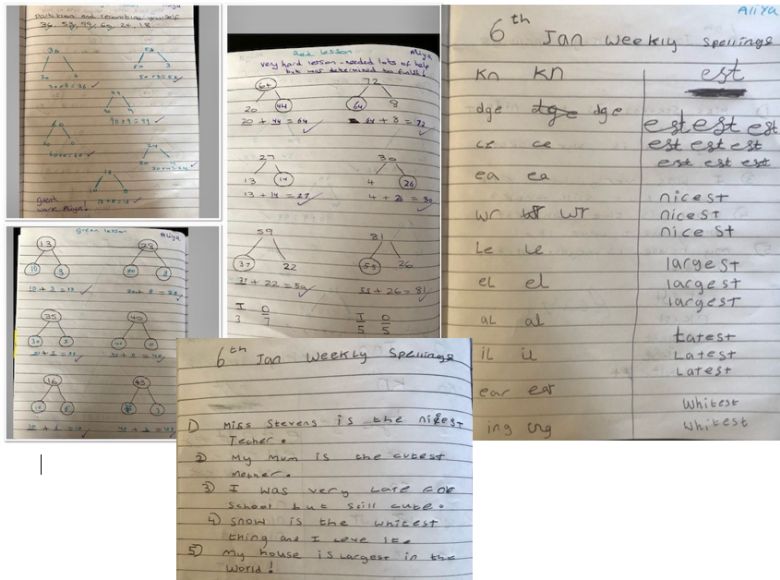 Partition and recombine yourself
36, 53, 99, 60, 24, 18.
36
30 6
30+6=36
53
50 3
50+3=53
99
90 9
90+9=99
60
24
18
10 8
10+8=18
great
work Aliya!
green lesson
Aliya
13
10 3
10+3=13
28
20 8
20+8=28
35
30 5
40
16
10 6
43
40 3
lesson
Aliya
very hard lesson - needed lots of help
but was determined to finish!
64
20 44
20 + 44 = 64
72
64 8
64 + 8 = 72
27
13 14
13 + 14 = 27
30
4 26
4 + 26 = 30
59
37 22
37 + 22 = 59
81
55 26
55 + 26 = 81
T O
3 7
T O
5 5
Aliya
6th Jan Weekly Spellings
kn kn
dge dge dge
ce ce
ea ea
wr wr wr
le le
el el
al al
il il
ear ear
ing ing
est
est est est
est est est
est est est
nicest
nicest
nicest
largest
largest
largest
Latest
Latest
Latest
whitest
whitest
6th Jan Weekly Spellings
1) Miss Stevens is the nicest
Techer.
2) My Mum is the cutest
Mother.
3) I was very Late for
School but still cute.
4) Snow is the whitest
thing and I Love it.
5) My house is Largest in the
World!